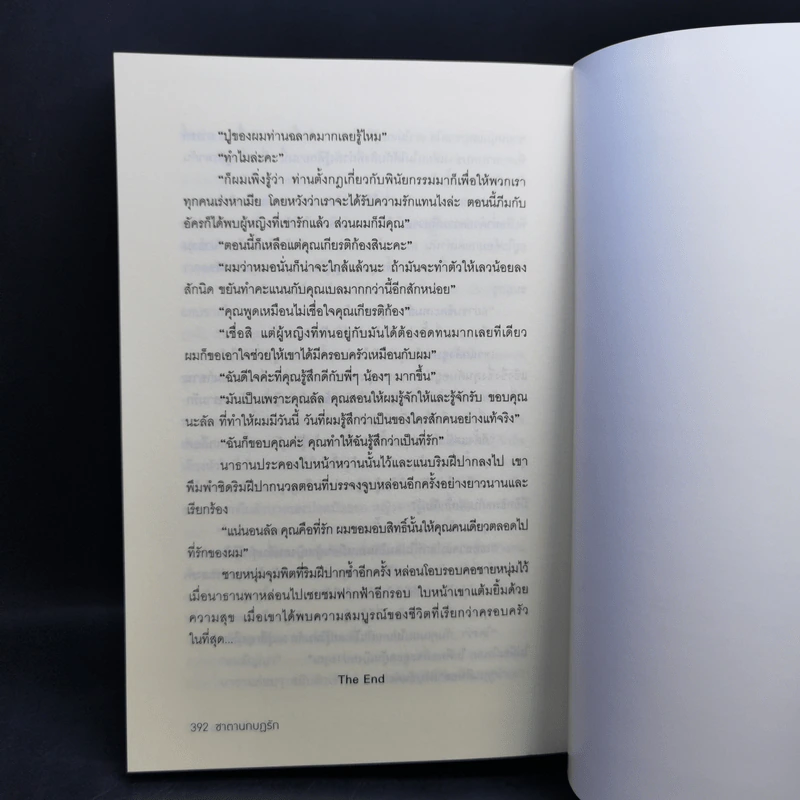 “ปู่ของผมท่านฉลาดมากเลยรู้ไหม”
“ทำไมล่ะคะ”
“ก็ผมเพิ่งรู้ว่า ท่านตั้งกฎเกี่ยวกับพินัยกรรมมาก็เพื่อให้พวกเรา
ทุกคนเร่งหาเมีย โดยหวังว่าเราจะได้รับความรักแทนไงล่ะ ตอนนี้ภีมกับ
อัครก็ได้พบผู้หญิงที่เขารักแล้ว ส่วนผมก็มีคุณ”
“ตอนนี้ก็เหลือแต่คุณเกียรติก้องสินะคะ”
“ผมว่าหมอนั่นก็น่าจะใกล้แล้วนะ ถ้ามันจะทำตัวให้เลวน้อยลง
สักนิด ขยันทำคะแนนกับคุณเบลมากกว่านี้อีกสักหน่อย”
“คุณพูดเหมือนไม่เชื่อใจคุณเกียรติก้อง”
“เชื่อสิ แต่ผู้หญิงที่ทนอยู่กับมันได้ต้องอดทนมากเลยทีเดียว
ผมก็ขอเอาใจช่วยให้เขาได้มีครอบครัวเหมือนกับผม”
“ฉันดีใจค่ะที่คุณรู้สึกดีกับพี่ๆ น้องๆ มากขึ้น”
“มันเป็นเพราะคุณลัล คุณสอนให้ผมรู้จักให้และรู้จักรับ ขอบคุณ
นะลัล ที่ทำให้ผมมีวันนี้ วันที่ผมรู้สึกว่าเป็นของใครสักคนอย่างแท้จริง”
“ฉันก็ขอบคุณค่ะ คุณทำให้ฉันรู้สึกว่าเป็นที่รัก”
นาธานประคองใบหน้าหวานนั้นไว้และแนบริมฝีปากลงไป เขา
พึมพำชิดริมฝีปากนวลตอนที่บรรจงจูบหล่อนอีกครั้งอย่างยาวนานและ
เรียกร้อง
“แน่นอนลัล คุณคือที่รัก ผมขอมอบสิทธิ์นั้นให้คุณคนเดียวตลอดไป
ที่รักของผม”
ชายหนุ่มจุมพิตที่ริมฝีปากซ้ำอีกครั้ง หล่อนโอบรอบคอชายหนุ่มไว้
เมื่อนาธานพาหล่อนไปเชยชมฟากฟ้าอีกรอบ ใบหน้าเขาแต้มยิ้มด้วย
ความสุข เมื่อเขาได้พบความสมบูรณ์ของชีวิตที่เรียกว่าครอบครัว
ในที่สุด...
The End
392 ซาตานทบฏรัก